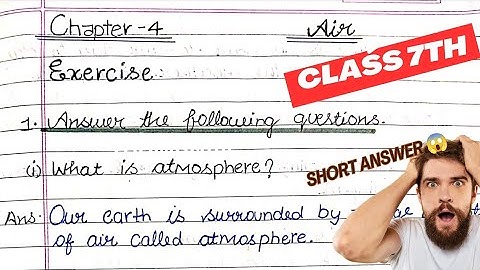 Chapter-4 Air
CLASS 7TH
Exercise:
1. Answer the following questions.
(i) What is atmosphere?
SHORT ANSWER 😱
Ans. Our earth is surrounded by
of air called atmosphere.